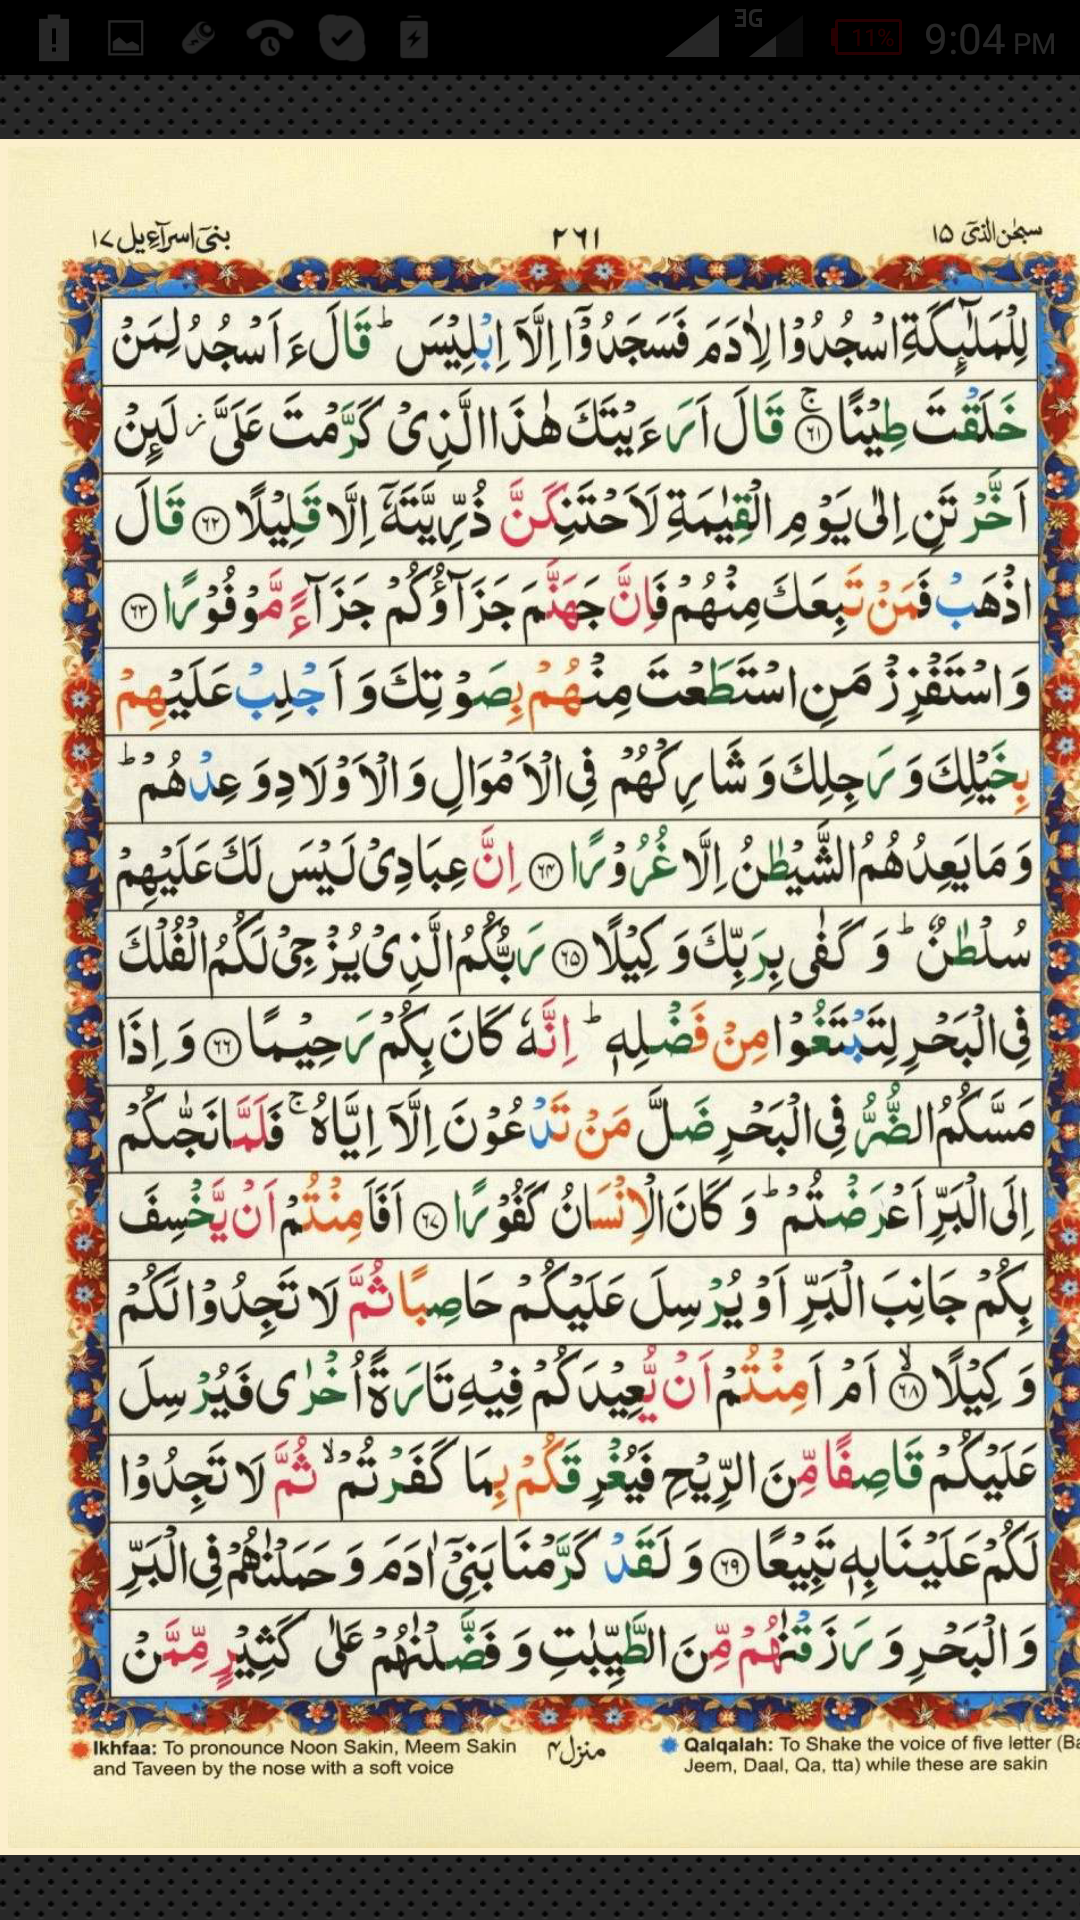 3G
11%
9:04 PM
سبحٰن الذیٓ ۱۵
۲۶۱
بنیٓ اسرآءیل ۱۷
لِلْمَلٰٓئِكَةِ اسْجُدُوْا لِاٰدَمَ فَسَجَدُوْۤا اِلَّاۤ اِبْلِيْسَ ؕ قَالَ ءَاَسْجُدُ لِمَنْ
خَلَقْتَ طِيْنًا ۚ‏﴿۶۱﴾ قَالَ اَرَءَيْتَكَ هٰذَا الَّذِىْ كَرَّمْتَ عَلَىَّ ز لَئِنْ
اَخَّرْتَنِ اِلٰى يَوْمِ الْقِيٰمَةِ لَاَحْتَنِكَنَّ ذُرِّيَّتَهٗۤ اِلَّا قَلِيْلًا ﴿۶۲﴾ قَالَ
اذْهَبْ فَمَنْ تَبِعَكَ مِنْهُمْ فَاِنَّ جَهَنَّمَ جَزَآؤُكُمْ جَزَآءً مَّوْفُوْرًا ﴿۶۳﴾
وَاسْتَفْزِزْ مَنِ اسْتَطَعْتَ مِنْهُمْ بِصَوْتِكَ وَ اَجْلِبْ عَلَيْهِمْ
بِخَيْلِكَ وَ رَجِلِكَ وَ شَارِكْهُمْ فِى الْاَمْوَالِ وَ الْاَوْلَادِ وَ عِدْهُمْ ؕ
وَ مَا يَعِدُهُمُ الشَّيْطٰنُ اِلَّا غُرُوْرًا ﴿۶۴﴾ اِنَّ عِبَادِىْ لَيْسَ لَكَ عَلَيْهِمْ
سُلْطٰنٌ ؕ وَ كَفٰى بِرَبِّكَ وَكِيْلًا ﴿۶۵﴾ رَبُّكُمُ الَّذِىْ يُزْجِىْ لَكُمُ الْفُلْكَ
فِى الْبَحْرِ لِتَبْتَغُوْا مِنْ فَضْلِهٖ ؕ اِنَّهٗ كَانَ بِكُمْ رَحِيْمًا ﴿۶۶﴾ وَ اِذَا
مَسَّكُمُ الضُّرُّ فِى الْبَحْرِ ضَلَّ مَنْ تَدْعُوْنَ اِلَّاۤ اِيَّاهُ ۚ فَلَمَّا نَجّٰىكُمْ
اِلَى الْبَرِّ اَعْرَضْتُمْ ؕ وَ كَانَ الْاِنْسَانُ كَفُوْرًا ﴿۶۷﴾ اَفَاَمِنْتُمْ اَنْ يَّخْسِفَ
بِكُمْ جَانِبَ الْبَرِّ اَوْ يُرْسِلَ عَلَيْكُمْ حَاصِبًا ثُمَّ لَا تَجِدُوْا لَكُمْ
وَكِيْلًا ۙ﴿۶۸﴾ اَمْ اَمِنْتُمْ اَنْ يُّعِيْدَكُمْ فِيْهِ تَارَةً اُخْرٰى فَيُرْسِلَ
عَلَيْكُمْ قَاصِفًا مِّنَ الرِّيْحِ فَيُغْرِقَكُمْ بِمَا كَفَرْتُمْ ۙ ثُمَّ لَا تَجِدُوْا
لَكُمْ عَلَيْنَا بِهٖ تَبِيْعًا ﴿۶۹﴾ وَ لَقَدْ كَرَّمْنَا بَنِىْۤ اٰدَمَ وَ حَمَلْنٰهُمْ فِى الْبَرِّ
وَ الْبَحْرِ وَ رَزَقْنٰهُمْ مِّنَ الطَّيِّبٰتِ وَ فَضَّلْنٰهُمْ عَلٰى كَثِيْرٍ مِّمَّنْ
Ikhfaa: To pronounce Noon Sakin, Meem Sakin
and Taveen by the nose with a soft voice
منزل ۴
Qalqalah: To Shake the voice of five letter (Ba
Jeem, Daal, Qa, tta) while these are sakin